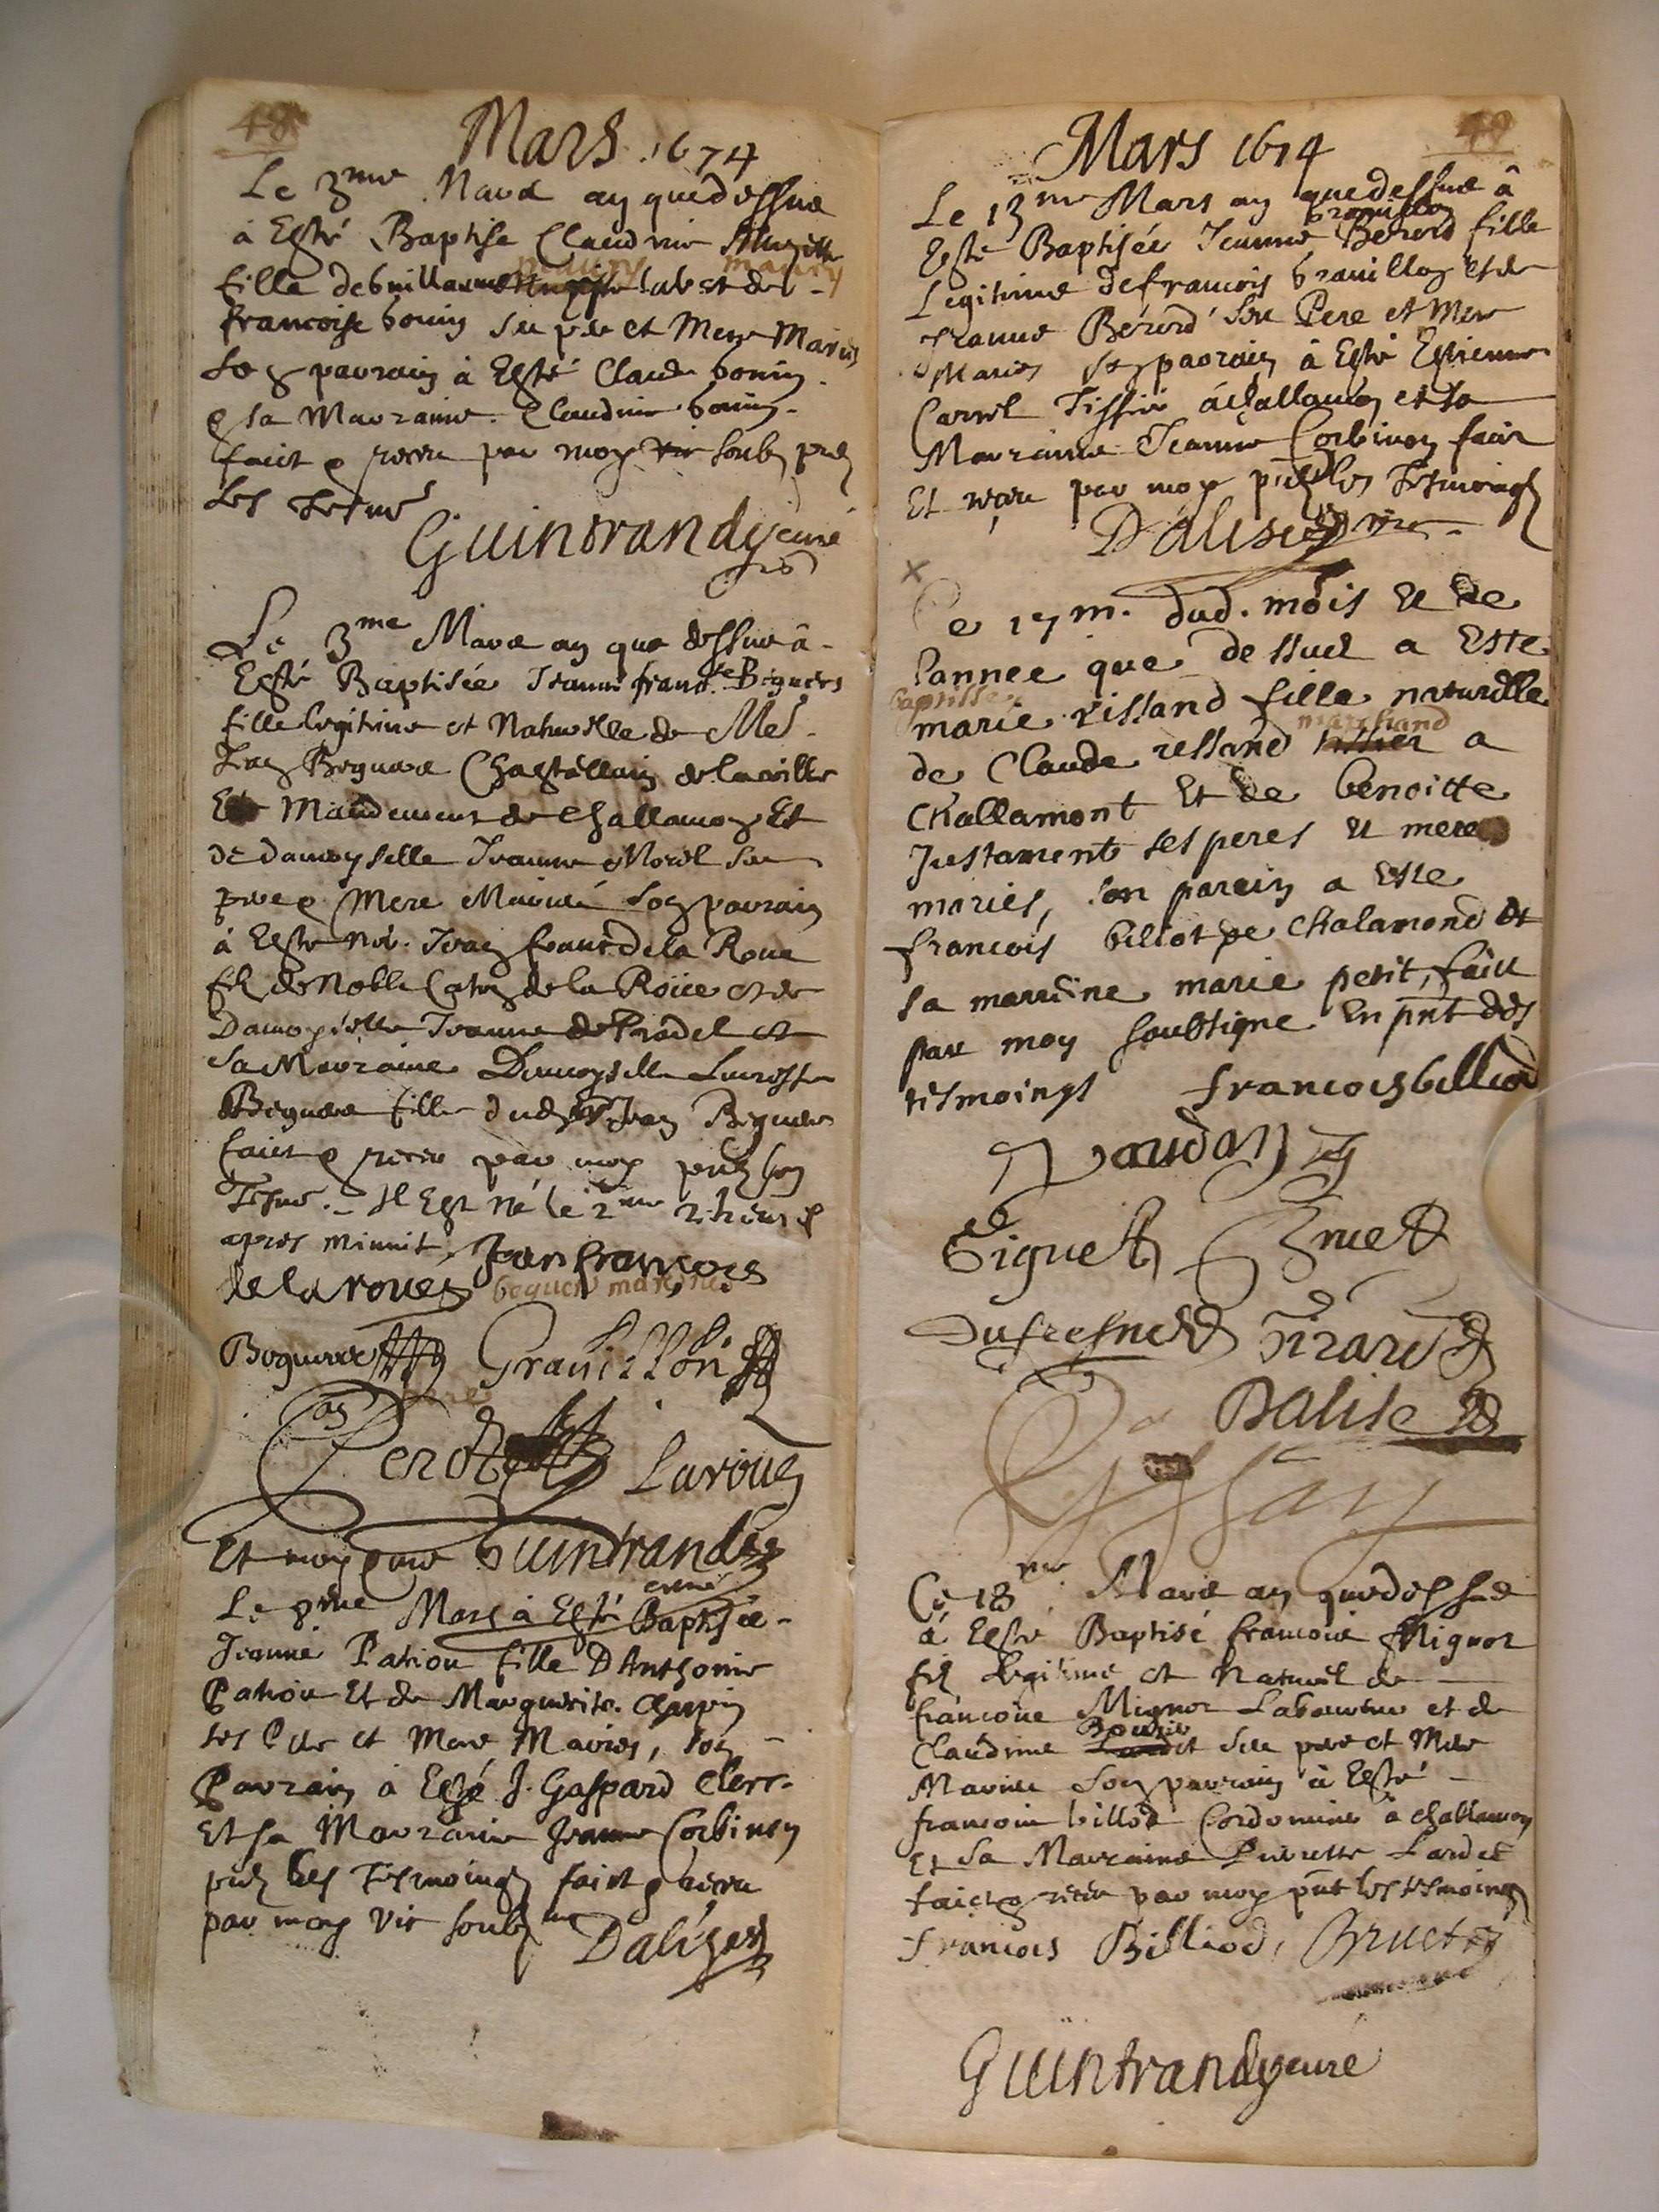 48
Mars 1674
Le 3me Mars an que dessus
à Esté Baptisé Claudine
fille de Guillaume lab et de
françoise bonin Ses pere et Mere Mariés
Son parrain à Esté Claude bonin
e sa Marraine Claudine bonin
fait e receu par moy soubs prés
Les Tesmo
Guintrandy curé
Le 3me Mars an que dessus â
Esté Baptisée Jeanne franc.se Beguers
fille legitime et Naturelle de Me
Jean Beguere Chastellain de la ville
Et Mandement de Challamon Et
De damoyselle Jeanne Morel ses
pere e Mere Mariés Son parrain
à Esté no. Jean franc. de la Roue
fils de Noble de la Roüe et de
Damoyselle Jeanne de Pradel et
Sa Marraine Damoyselle Lucresse
Beguere fille dud Sr Jean Beguere
fait e receu par moy prés les
Tesmo. Il Est né le 2me
apres minuit. Jean françois
de la roue beguere maraine
Beguere Grauillon
pere
Perot Laroue
Et moy curé Guintrandy
curé
Le 8me Mars à Esté Baptisée
Jeanne Patiou fille D'Anthoine
Patiou Et de Marguerite
ses Pere et Mere Mariés, Son
Parrain à Esté J. Gaspard Clerc
Et sa Marraine Jeanne Corbinon
prés les Tesmoings faict e receu
par moy vic soubs.né
Dalises
49
Mars 1674
Le 13me Mars an que dessus â
Grauillon
Esté Baptisée Jeanne Berord fille
Legitime de francois Grauillon et de
Jeanne Berord Ses Pere et Mere
Mariés Son parrain à Esté Estienne
Carrel Tissier à Challamon et sa
Marraine Jeanne Corbinon fait
Et receu par moy prés les Tesmoings
Dalises vic
x
Ce 17m. dud. mois Et de
l'annee que dessus a Este
baptissee
marie rissand fille naturelle
marchand
de Claude ressand tissier a
Challamont Et de benoitte
Justament ses peres Et mere
mariés, son parein a Este
francois billiot de Chalamond Et
sa marreine marie petit, faict
par moy soubsigne En pnt des
tesmoings francois billiod
Vaudan
Giguet Bruet
Dufresne Girard
Dalise
Ce 18me Mars an que dessus
à Esté Baptisé francois Mignot
fils Legitime et Naturel de
francois Mignot Laboureur et de
Bouvie
Claudine Lardet Ses pere et Mere
Mariés Son parrain à Esté
francois billod Cordonnier à Challamon
Et Sa Marraine Pierrette Lardet
faict e receu par moy pnt les tesmoings
francois Billiod, Bruet
Guintrandy curé